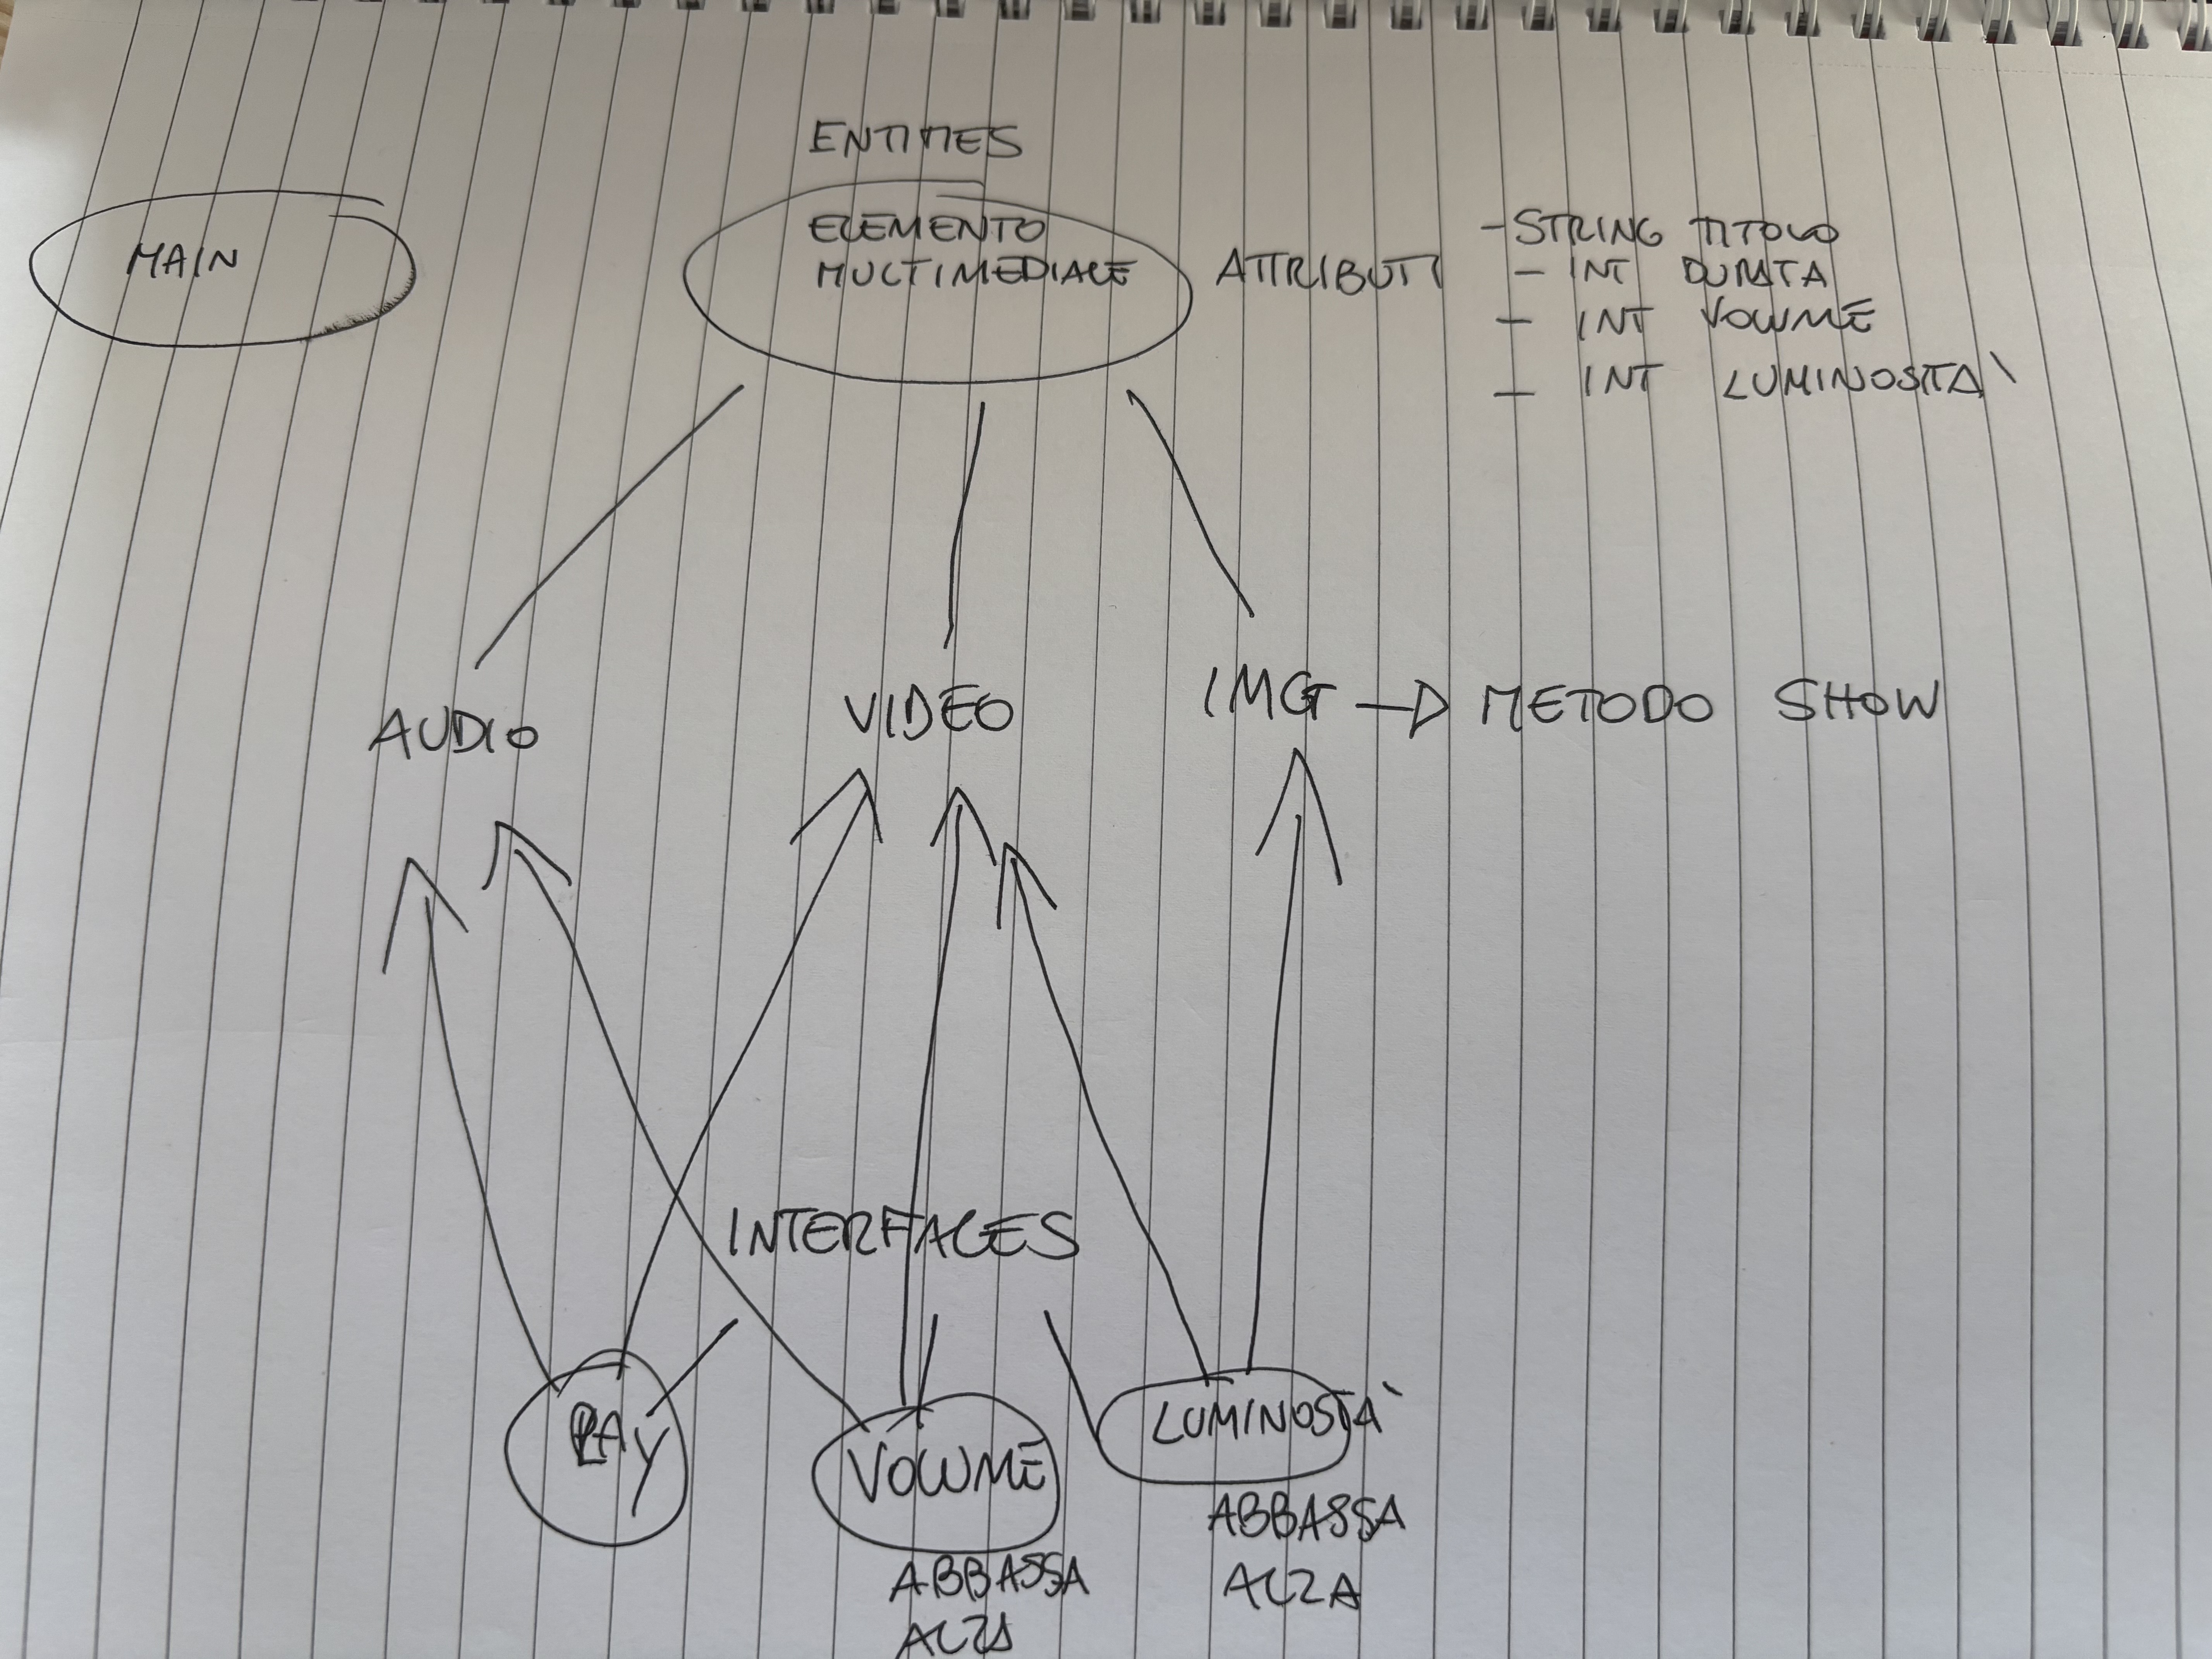 MAIN
ENTITIES
ELEMENTO
MULTIMEDIALE
ATTRIBUTI
- STRING TITOLO
- INT DURATA
- INT VOLUME
- INT LUMINOSITA'
AUDIO
VIDEO
IMG → METODO SHOW
INTERFACES
PLAY
VOLUME
ABBASSA
ALZA
LUMINOSITA'
ABBASSA
ALZA